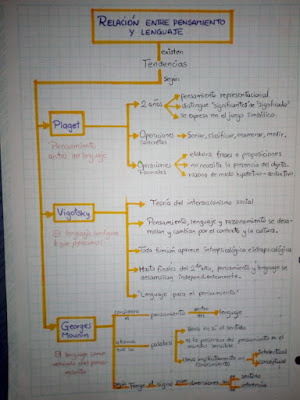 RELACIÓN ENTRE PENSAMIENTO
Y LENGUAJE
existen
Tendencias
según
Piaget
Pensamiento
antes de lenguaje
2 años
pensamiento representacional
distingue "significantes" de "significado"
se expresa en el juego simbólico.
Operaciones
concretas
Seriar, clasificar, enumerar, medir,
Operaciones
formales
elabora frases o proposiciones
no necesita la presencia del objeto.
razona en modo hipotético-deductivo
Vigotsky
El lenguaje configura
el pensamiento
Teoría del interaccionismo social
Pensamiento, lenguaje y razonamiento se desa-
rrollan y cambian por el contexto y la cultura.
Toda función aparece
Hasta finales del 2do año, pensamiento y lenguaje se
desarrollan independientemente.
"Lenguaje para el pensamiento"
Georges
Mounin
El lenguaje como
vehículo del pensa-
miento
considera
el
pensamiento
antes
del
lenguaje
afirma
que la
palabra
lleva en sí el sentido
es la presencia del pensamiento en el
mundo sensible.
lleva implícitamente un
conocimiento
intelectual
conceptual
Tiene el signo
dimensiones
sentido
referencia